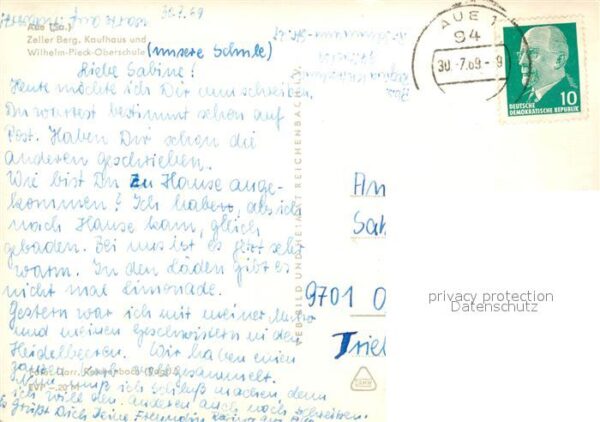 30.7.69
Aue (Sa.)
Zeller Berg, Kaufhaus und
Wilhelm-Pieck-Oberschule (unsere Schule)
Liebe Sabine!
Heute möchte ich Dir nun schreiben.
Du wartest bestimmt schon auf
Post. Haben Dir schon die
anderen geschrieben.
Wie bist Du zu Hause ange-
kommen? Ich habe, als ich
nach Hause kam, gleich
gebaden. Bei uns ist es jetzt sehr
warm. In den Läden gibt es
nicht mal Limonade.
Gestern war ich mit meiner Mutter
und meinen Geschwistern in den
Heidelbeeren. Wir haben einen
ganzen
Nun muß ich Schluß machen, denn
ich will den anderen auch noch schreiben.
Es grüßt Dich Deine Freundin
AUE 1
94
30.-7.69.-9
DEUTSCHE
DEMOKRATISCHE REPUBLIK
10
VEB BILD UND HEIMAT REICHENBACH I. V.
An
9701
privacy protection
Datenschutz